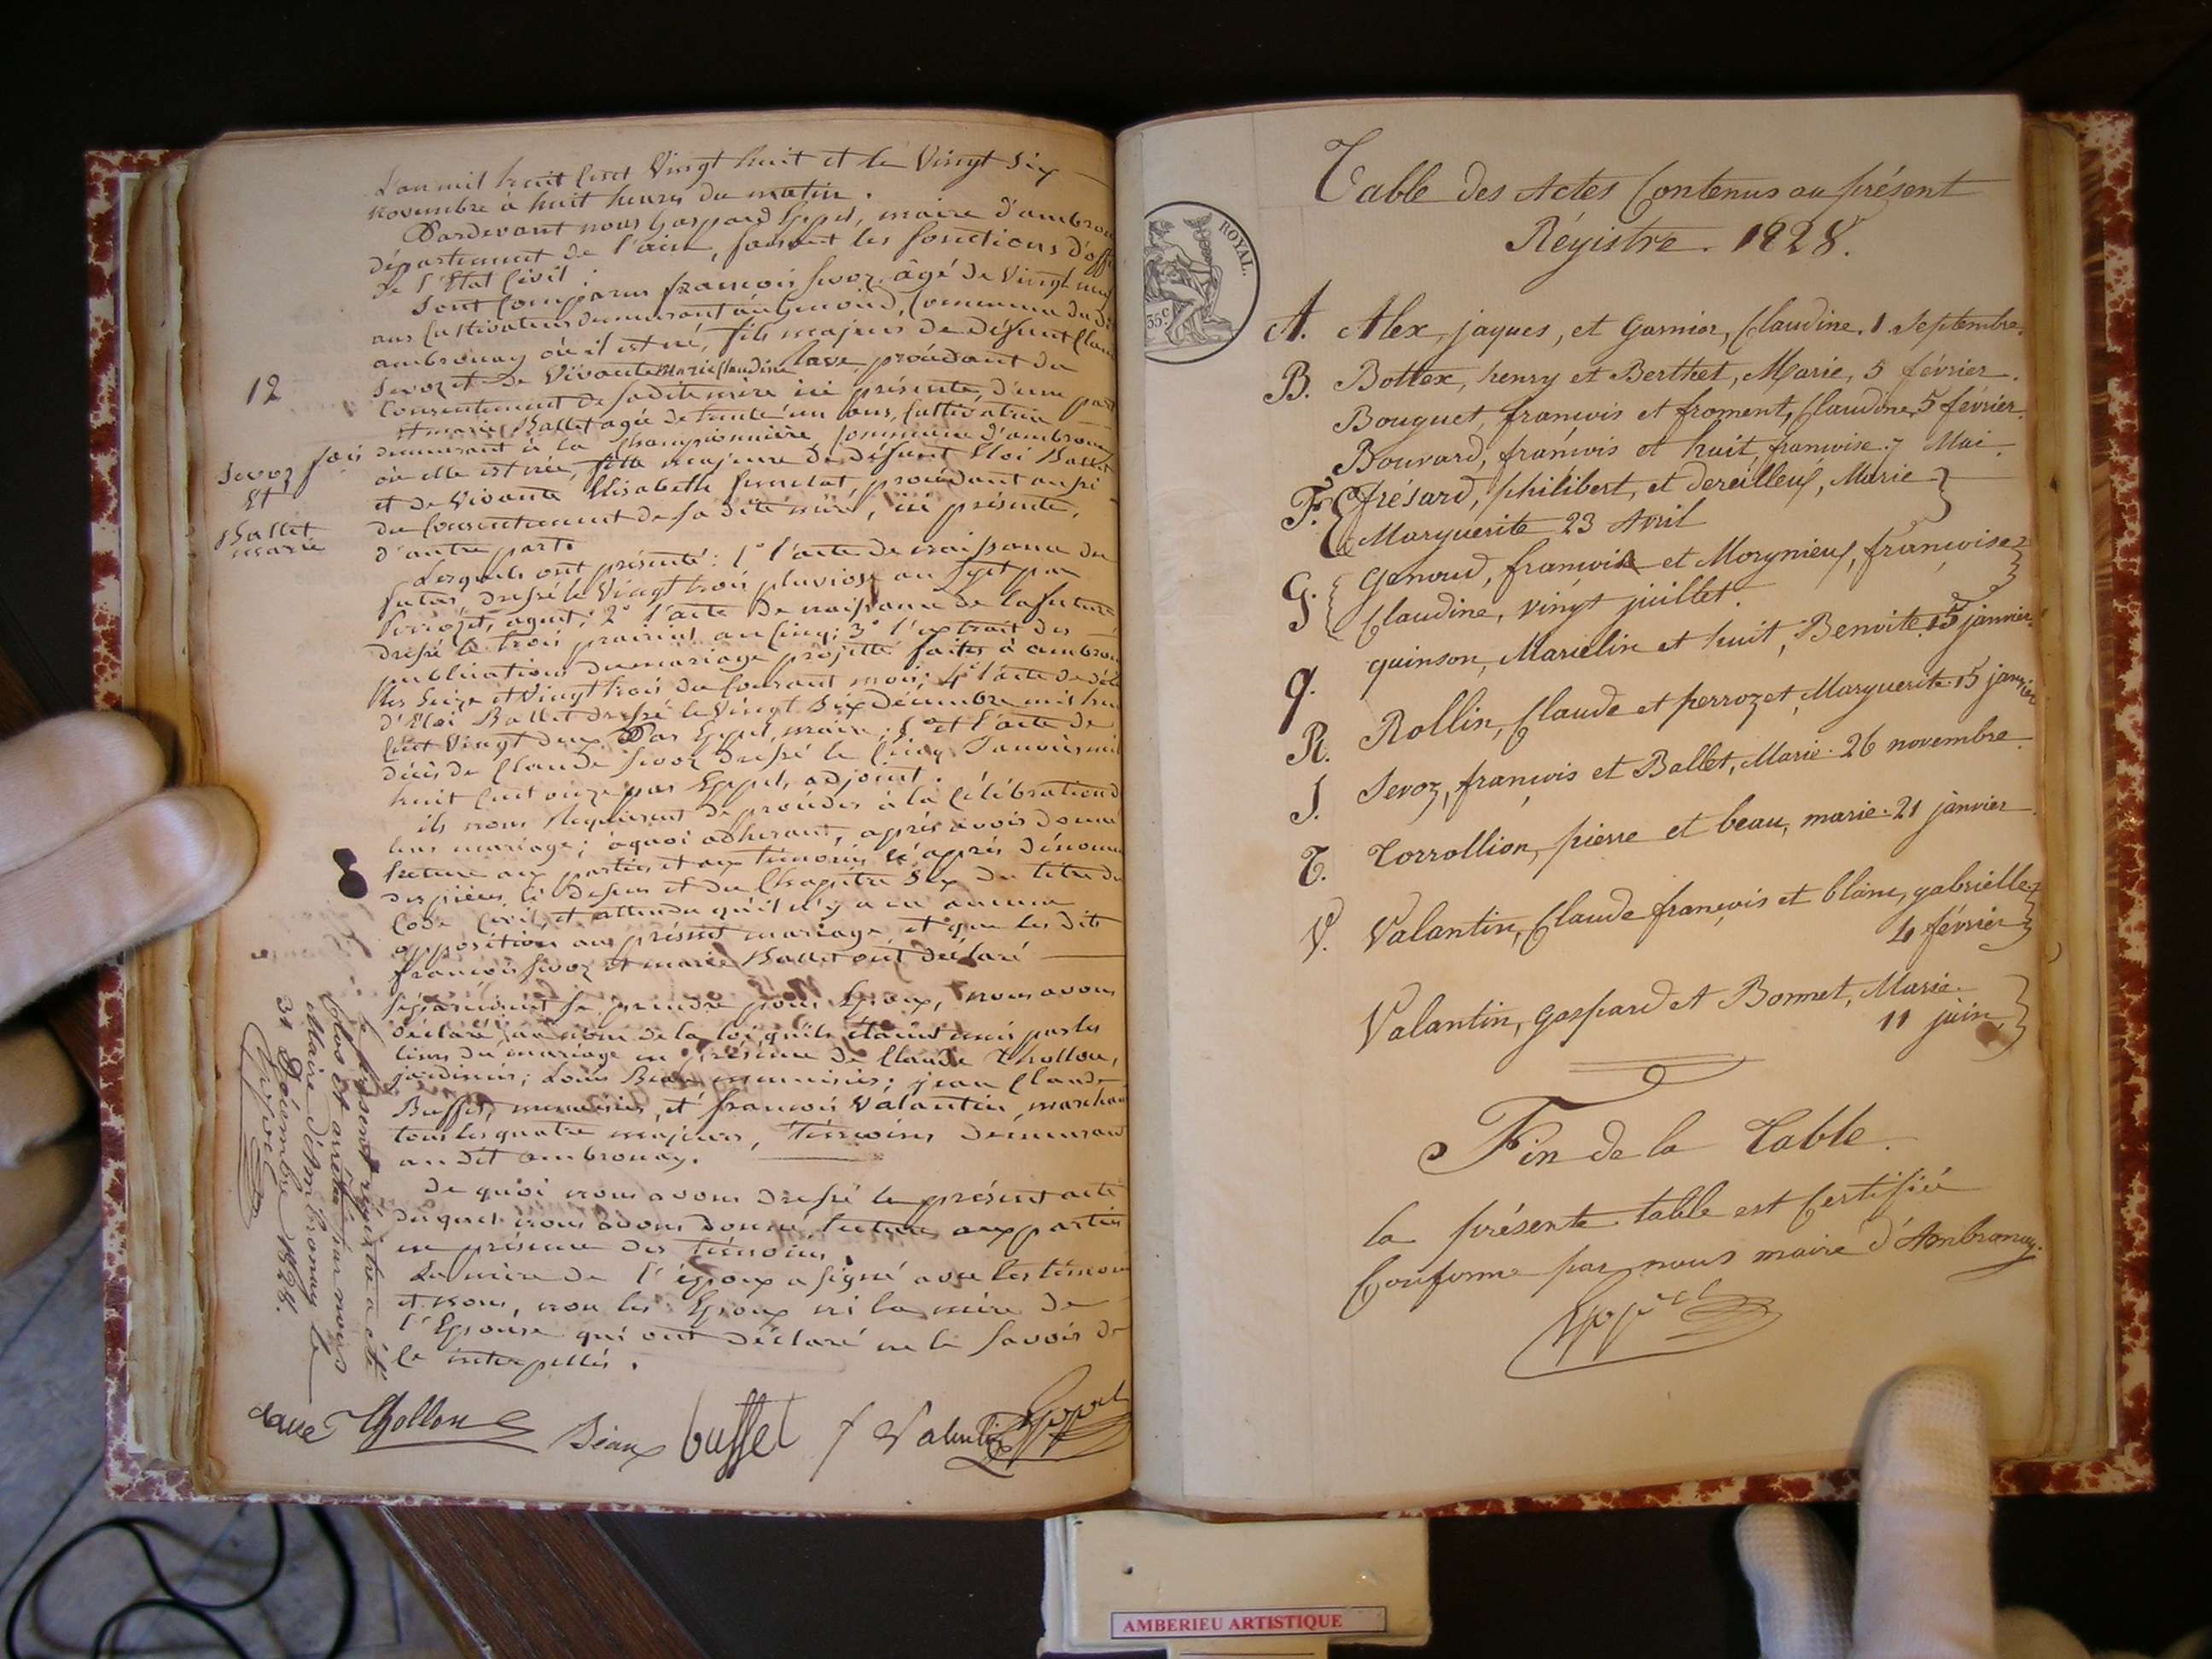 L'an mil huit cent vingt huit et le vingt six
novembre à huit heures du matin.
Pardevant nous Gaspard Eppel, maire d'ambron
département de l'ain, faisant les fonctions d'off
de l'Etat Civil.
Sont comparus françois Sevoz, âgé de vingt neuf
ans cultivateur demeurant au Genoud, commune du dit
ambronay où il est né, fils majeur de défunt Clau
Sevoz et de vivante Marie Claudine Cave, procédant du
consentement de sadite mère ici présente, d'une part
12
et marie Ballet agée de trente un ans, cultivatrice
demeurant à la Championnière, commune d'ambronay
Sevoz fois
Et
Ballet
marie
où elle est née, fille majeure de défunt Eloi Ballet
et de vivante Elisabeth, procédant aussi
du consentement de sa dite mère, ici présente,
d'autre part.
Lesquels ont présenté: 1° l'acte de naissance du
futur, dressé le vingt trois pluviose an Sept par
Perrozet, agent; 2° l'acte de naissance de la future
dressé le trois prairial an cinq; 3° l'extrait des
publications du mariage projetté faites à ambron
les Seize et vingt trois du courant mois; 4° l'acte de décè
d'Eloi Ballet dressé le vingt Six décembre mil hui
cent vingt deux Par Eppel, maire; 5° et l'acte de
décès de Claude Sevoz dressé le cinq Janvier mil
huit cent onze par Eppel, adjoint.
ils nous requièrent de procéder à la célébration d
leur mariage; à quoi adhérant, après avoir donné
lecture aux parties et aux témoins ci après dénommé
des pièces ci dessus et du Chapitre Six du titre du
Code Civil et attendu qu'il n'y a eu aucune
opposition au présent mariage et que les dits
françois Sevoz et marie Ballet ont déclaré
séparément se prendre pour Epoux, nous avons
déclaré au nom de la loi qu'ils étaient unis par les
liens du mariage en présence de Claude Thollon,
jardinier; Louis Beau menuisier; jean Claude
Buffet, menuisier, et françois Valantin, marchan
tous les quatre majeurs, témoins demeurant
au dit ambronay.
De quoi nous avons dressé le présent acte
duquel nous avons donné lecture aux parties
en présence des témoins.
La mère de l'époux a signé avec les témoins
et nous, non les Epoux ni la mère de
l'Epouse qui ont déclaré ne le savoir de
ce interpellés.
le présent régistre a été
Clos et arrêté par nous
Maire d'Ambronay le
31 Décembre 1828.
Eppel
Cave Thollon Beau buffet f Valantin Eppel
ROYAL.
35c
Table des Actes Contenus au présent
Régistre. 1828.
A. Alex, jaques, et Garnier, Claudine. 1. Septembre.
B. Bottex, henry et Berthet, Marie, 5 février.
Bouguet, françois et froment, Claudine, 5 février.
Bouvard, françois et huit, francoise. 7 Mai.
F. frésard, philibert, et dereilleux, Marie
Marguerite 23 Avril
G. Genoud, françois et Morgnieux, françoise
Claudine, vingt juillet.
q. quinson, Marcelin et huit, Benoite. 15 janvier.
R. Rollin, Claude et perrozet, Marguerite 15 janvier
S. Sevoz, françois et Ballet, Marie. 26 novembre.
T. Torrollion, pierre et beau, marie. 21 janvier.
V. Valantin, Claude françois et blanc, gabrielle
4 février
Valantin, gaspard et Bonnet, Marie.
11 juin,
Fin de la Table.
la présente table est Certifiée
Conforme par nous maire d'Ambronay.
Eppel
AMBERIEU ARTISTIQUE